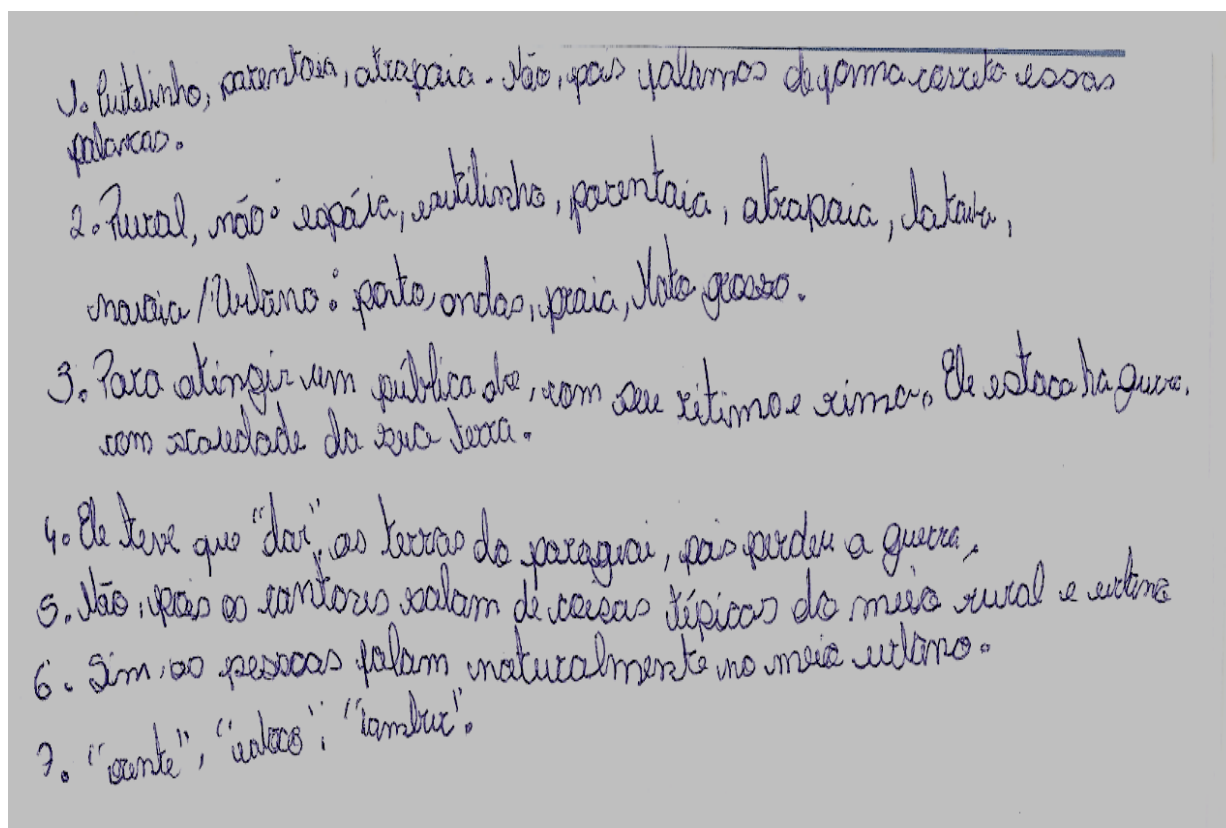 1. Cuitelinho, parentaia, atrapaia. Não, pois falamos de forma correta essas
palavras.
2. Rural, não: espáia, cuitilinho, parentaia, atrapaia, bataia,
navaia / Urbano: porto, ondas, praia, Mato grosso.
3. Para atingir um pública, com seu ritimo e rima. Ele estava na guerra,
com saudade da sua terra.
4. Ele teve que "dar", as terras do paraguai, pois perdeu a guerra.
5. Não, pois os cantores falam de coisas típicas do meio rural e urbano
6. Sim, as pessoas falam naturalmente no meio urbano.
7. "oxente",